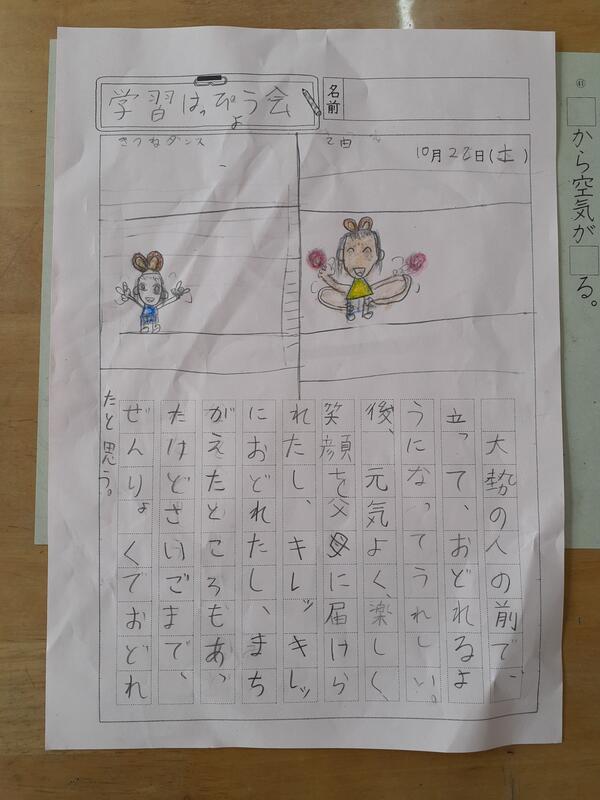 学習はっぴょう会
名前
きつねダンス
10月22日(土)
大勢の人の前で、
立って、おどれるよ
うになってうれしい。
後、元気よく、楽しく、
笑顔を父母に届けら
れたし、キレッキレッ
におどれたし、まち
がえたところもあっ
たけどさいごまで、
ぜんりょくでおどれ
たと思う。
㊶
□から空気が□る。